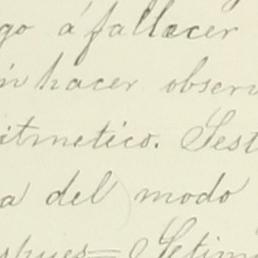 go á fallecer
n hacer observ
itmetico. Sest
a del modo
spues = Setim